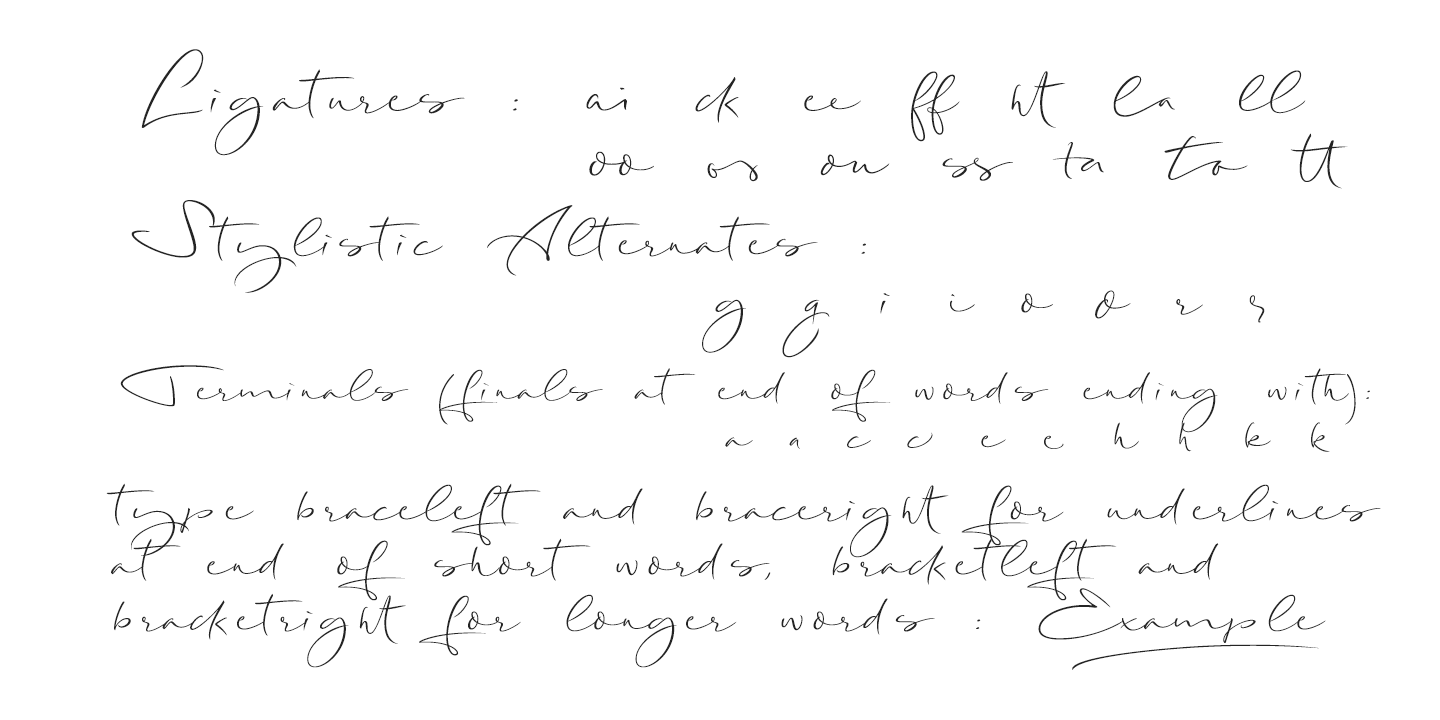 Ligatures : ai ck ee ff ht la ll
oo os ou ss ta to tt
Stylistic Alternates :
g g i i o o r r
Terminals (finals at end of words ending with):
a a c c e e h h k k
type braceleft and braceright for underlines
at end of short words, bracketleft and
bracketright for longer words : Example